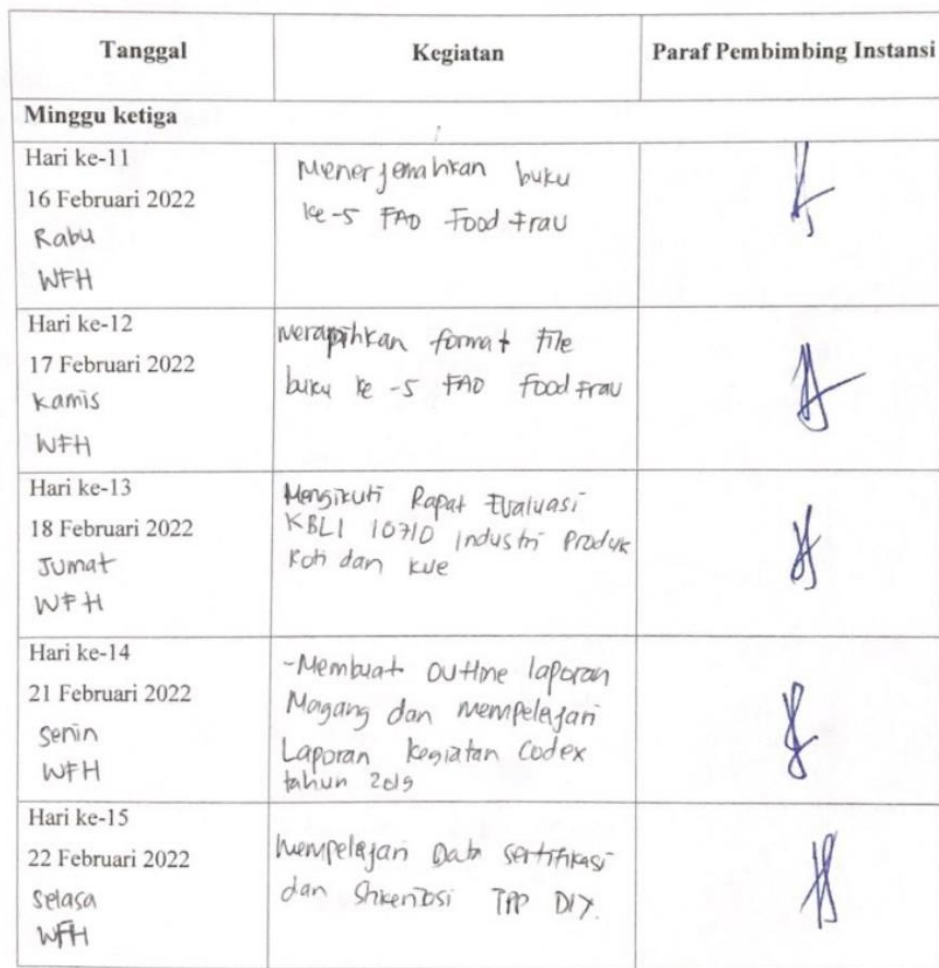 Tanggal
Kegiatan
Paraf Pembimbing Instansi
Minggu ketiga
Hari ke-11
16 Februari 2022
Rabu
WFH
Menerjemahkan buku
ke-5 FAO Food Frau
Hari ke-12
17 Februari 2022
Kamis
WFH
merapihkan format file
buku ke-5 FAO food Frau
Hari ke-13
18 Februari 2022
Jumat
WFH
Mengikuti Rapat Evaluasi
KBLI 10710 Industri Produk
Roti dan kue
Hari ke-14
21 Februari 2022
Senin
WFH
-Membuat outline laporan
Magang dan mempelajari
Laporan kegiatan Codex
tahun 2019
Hari ke-15
22 Februari 2022
Selasa
WFH
mempelajari Data sertifikasi
dan TPP DIY.